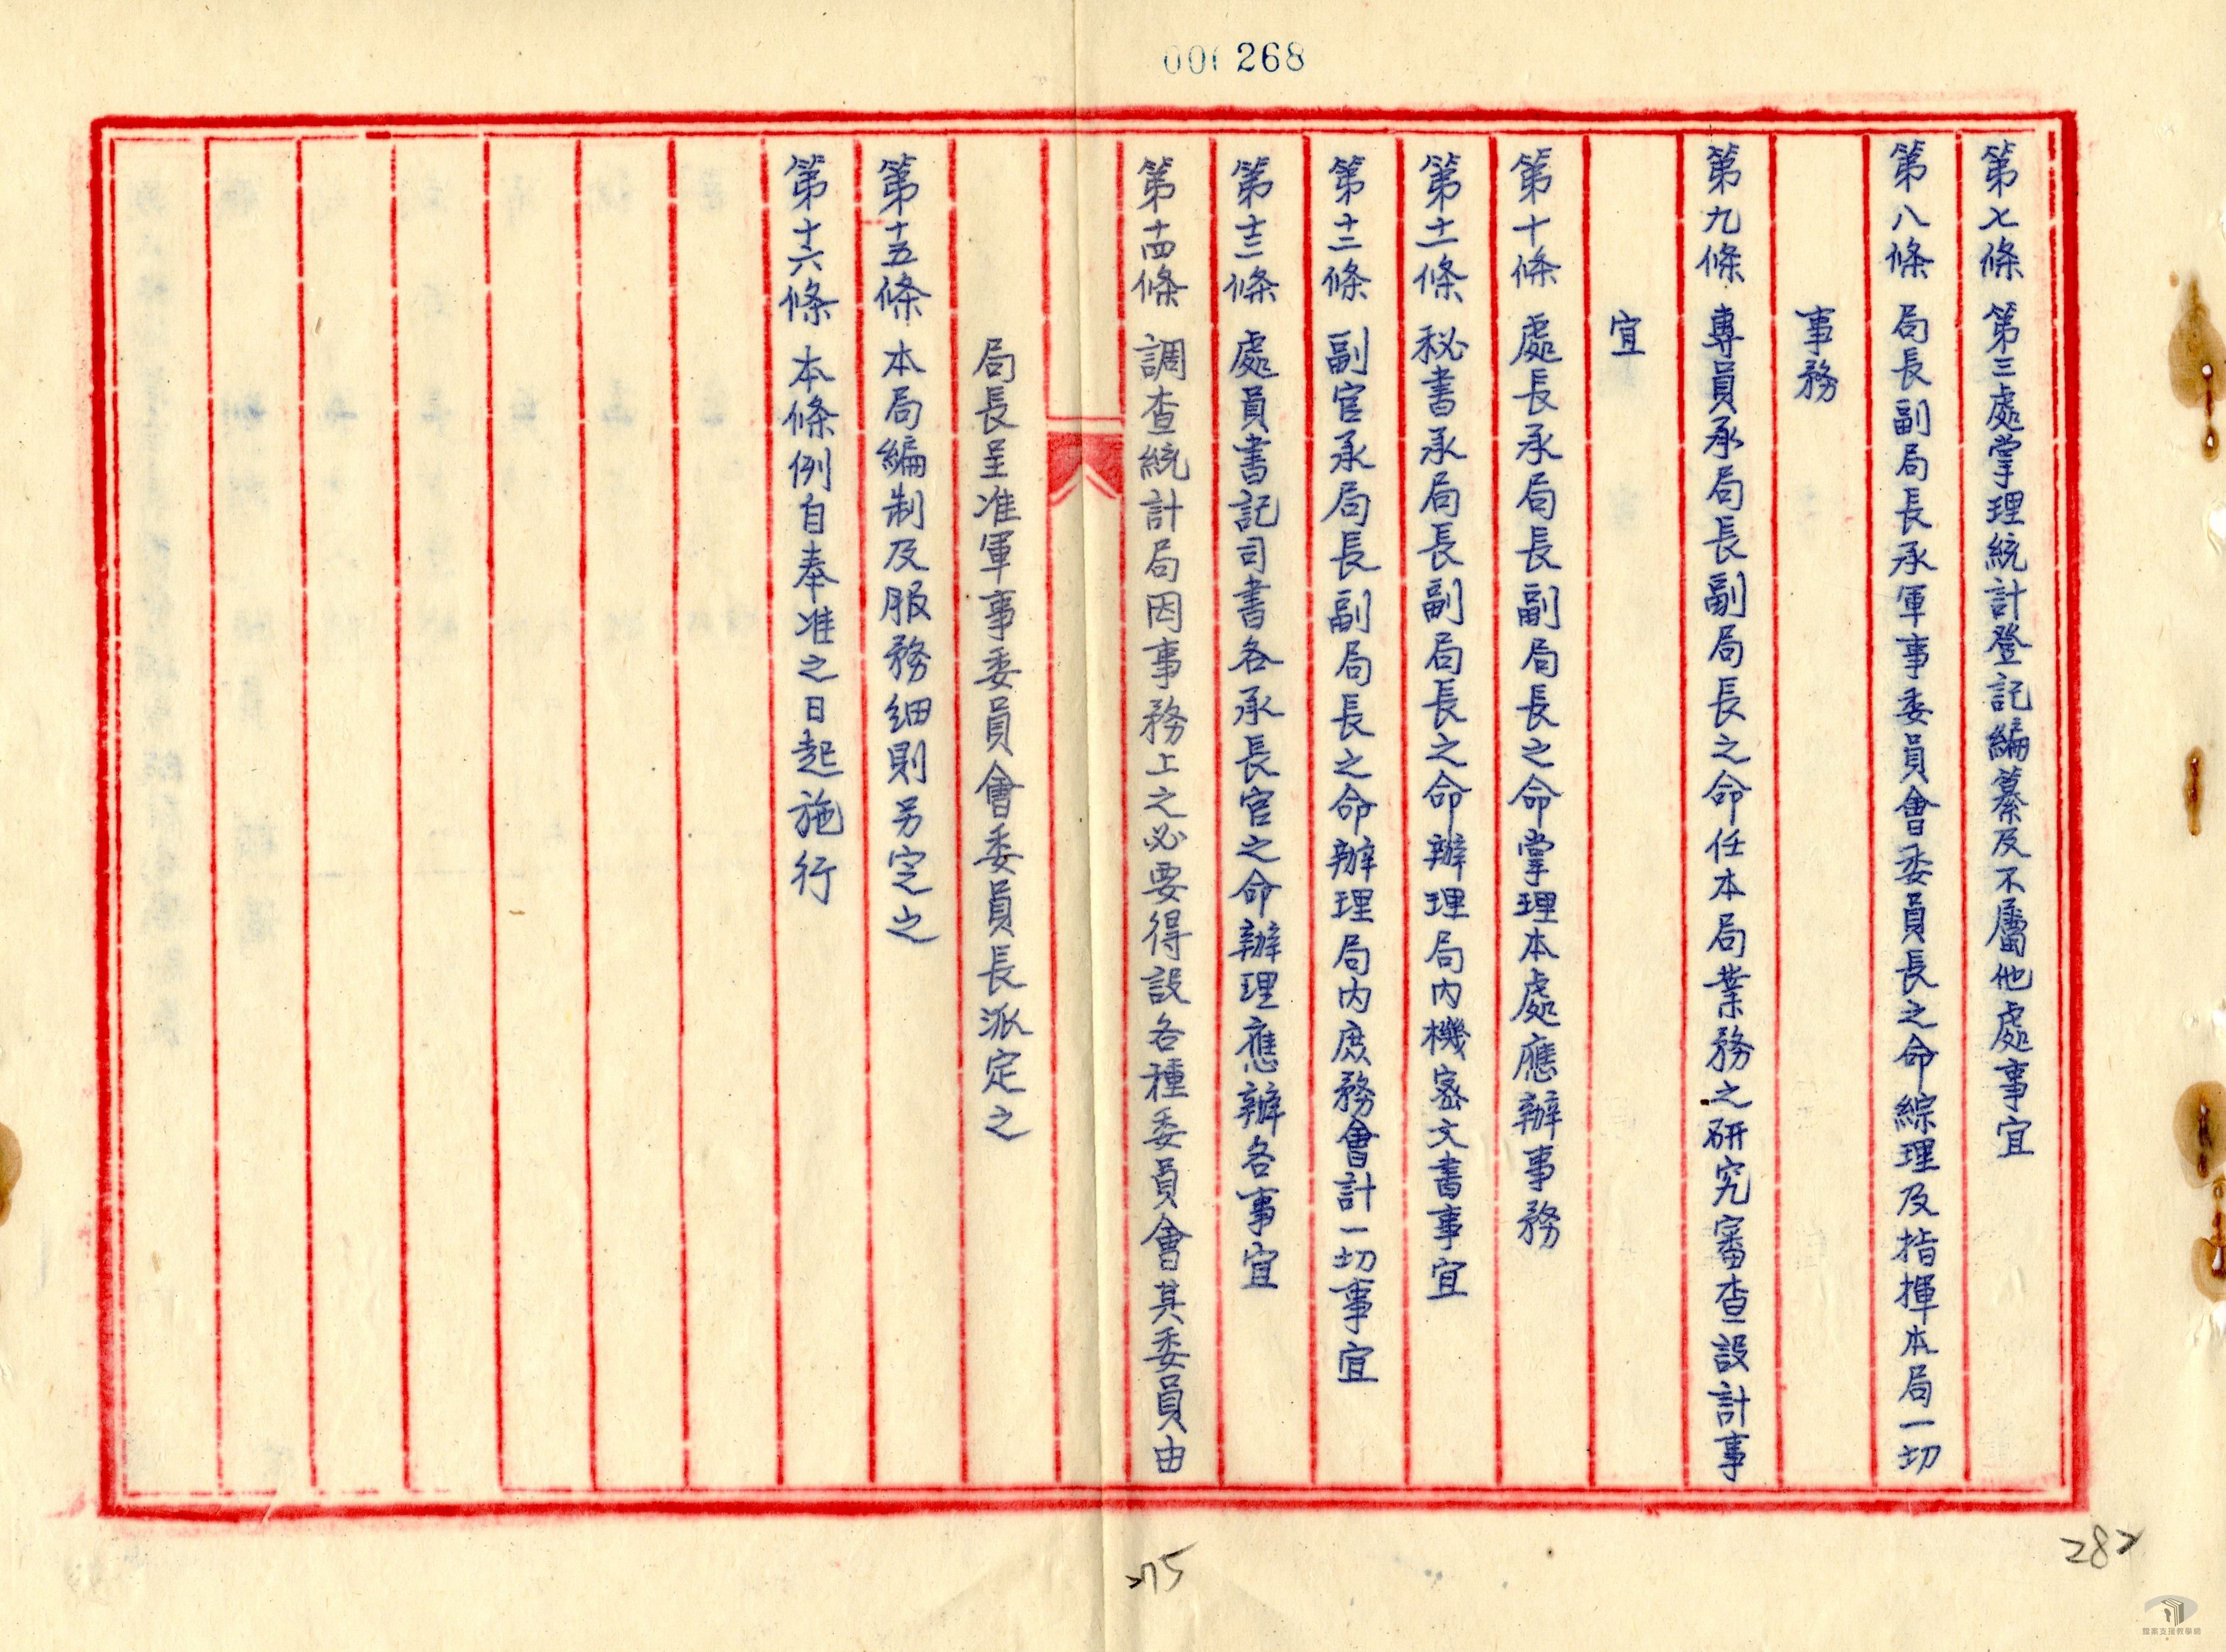 268
第七條 第三處掌理統計登記編纂及不屬他處事宜
第八條 局長副局長承軍事委員會委員長之命綜理及指揮本局一切
事務
第九條 專員承局長副局長之命任本局業務之研究審查設計事
宜
第十條 處長承局長副局長之命掌理本處應辦事務
第十一條 秘書承局長副局長之命辦理局內機密文書事宜
第十二條 副官承局長副局長之命辦理局內庶務會計一切事宜
第十三條 處員書記司書各承長官之命辦理應辦各事宜
第十四條 調查統計局因事務上之必要得設各種委員會其委員由
局長呈准軍事委員會委員長派定之
第十五條 本局編制及服務細則另定之
第十六條 本條例自奉准之日起施行
檔案支援教學網